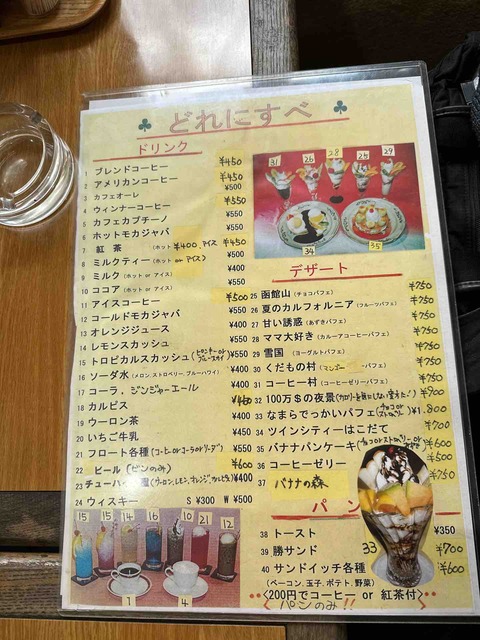 どれにすべ
ドリンク
1 ブレンドコーヒー ¥450
2 アメリカンコーヒー ¥450
3 カフェオーレ ¥500
4 ウィンナーコーヒー ¥550
5 カフェカプチーノ ¥550
6 ホットモカジャバ ¥550
7 紅 茶 (ホット ¥400, アイス ¥450
8 ミルクティー (ホット or アイス) ¥500
9 ミルク (ホット or アイス) ¥400
10 ココア (ホット or アイス) ¥550
11 アイスコーヒー ¥500
12 コールドモカジャバ ¥550
13 オレンジジュース ¥400
14 レモンスカッシュ ¥550
15 トロピカルスカッシュ ¥550
16 ソーダ水 (メロン、ストロベリー、ブルーハワイ) ¥400
17 コーラ、ジンジャーエール ¥400
18 カルピス
19 ウーロン茶 ¥400
20 いちご牛乳 ¥450
21 フロート各種 (コーヒーorコーラorソーダ) ¥550
22 ビール (ビンのみ) ¥600
23 チューハイ ¥400
24 ウィスキー S ¥300 W ¥500
31 26 28 25 29
34 35
デザート
25 函館山 (チョコパフェ) ¥750
26 夏のカルフォルニア (フルーツパフェ) ¥750
27 甘い誘惑 (あずきパフェ) ¥750
28 ママ大好き (カルーアコーヒーパフェ) ¥750
29 雪国 (ヨーグルトパフェ) ¥750
30 くだもの村 ¥750
31 コーヒー村 (コーヒーゼリーパフェ) ¥750
32 100万$の夜景 ¥900
33 なまらでっかいパフェ ¥1,800
34 ツインシティーはこだて ¥700
35 バナナパンケーキ ¥600
36 コーヒーゼリー ¥500
37 バナナの森 ¥750
パン
38 トースト ¥350
39 勝サンド ¥700
40 サンドイッチ各種 ¥600
(ベーコン、玉子、ポテト、野菜)
<200円でコーヒー or 紅茶付>
パンのみ!!
33
15 15 14 16 10 21 12
1 4